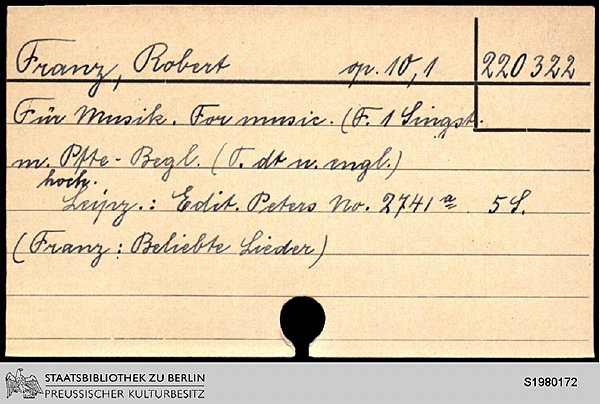 Franz, Robert op. 10,1 220 322
Für Musik. For music. (F. 1 Singst.
m. Pfte-Begl. (T. dt u. engl.)
hoch.
Leipz.: Edit. Peters No. 2741 a 5 S.
(Franz: Beliebte Lieder)
STAATSBIBLIOTHEK ZU BERLIN
PREUSSISCHER KULTURBESITZ
S1980172